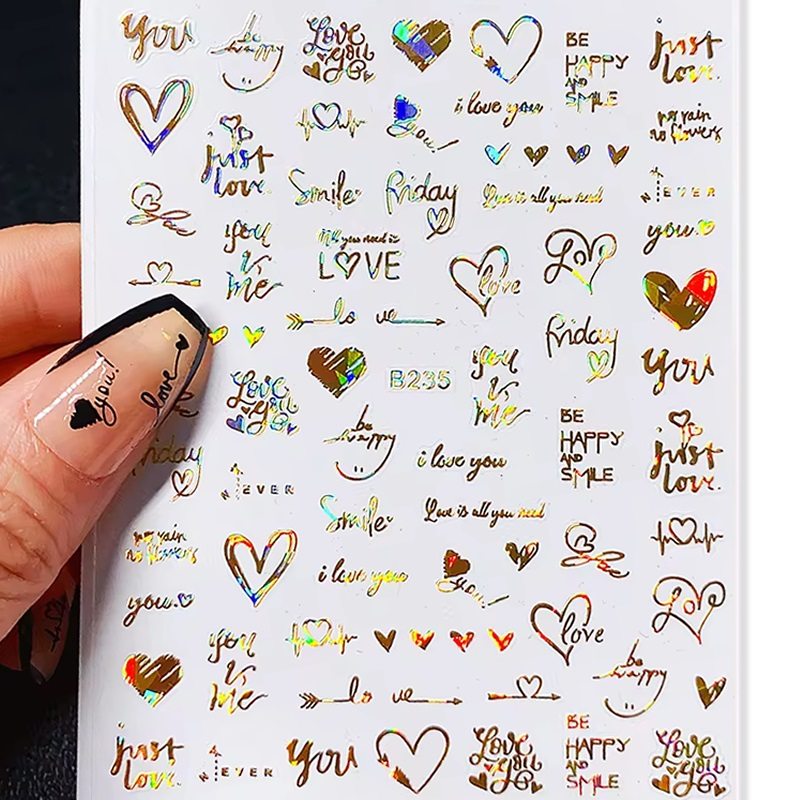 you
be
happy
Love
you
BE
HAPPY
AND
SMILE
just
love.
i love you
you!
no rain
no flowers
just
love.
Smile
friday
Love is all you need
NEVER
you
me
All you need is
LOVE
love
Love
you.
lo ve
friday
B235
you
me
you
you!
love
Love
you
be
happy
BE
HAPPY
AND
SMILE
just
love.
i love you
friday
NEVER
Smile
Love is all you need
no rain
no flowers
i love you
you!
you.
love
Love
you
me
be
happy
lo ve
just
love.
NEVER
you
Love
you
BE
HAPPY
AND
SMILE
Love
you